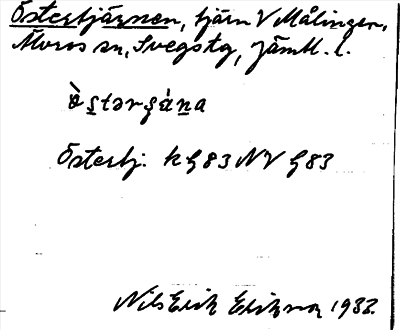 Östertjärnen, tjärn V Målingen,
Moros sn, Svegs tg, Jämtl. l.
Östertj. kg 83 NV g 83
Nils Erik Eriksson 1932.